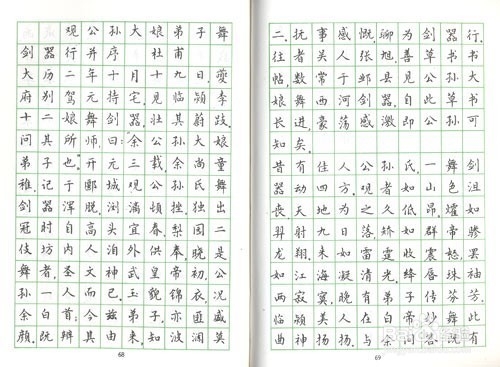 观公孙大娘弟子舞
剑器行并序 杜甫
大历二年十月十九日,夔
府别驾元持宅,见临颍李
十二娘舞剑器,壮其蔚跂,
问其所师,曰:“余公孙大娘
弟子也。”开元三载,余尚童
稚,记于郾城观公孙氏舞
剑器浑脱,浏漓顿挫,独出
冠时,自高头宜春、梨园二
伎坊内人洎外供奉,晓是
舞者,圣文神武皇帝初,公
孙一人而已。玉貌锦衣,况
余白首;今兹弟子,亦匪盛
颜。既辨其由来,知波澜莫
68
二,抚事感慨,聊为剑器行。
往者吴人张旭善草书书
帖,数常于邺县见公孙大
娘舞西河剑器,自此草书
长进,豪荡感激,即公孙可
知矣。
昔有佳人公孙氏,一舞剑
器动四方。观者如山色沮
丧,天地为之久低昂。燿如
羿射九日落,矫如群帝骖
龙翔。来如雷霆收震怒,罢
如江海凝清光。绛唇珠袖
两寂寞,晚有弟子传芬芳。
临颍美人在白帝,妙舞此
曲神扬扬。与余问答既有
69